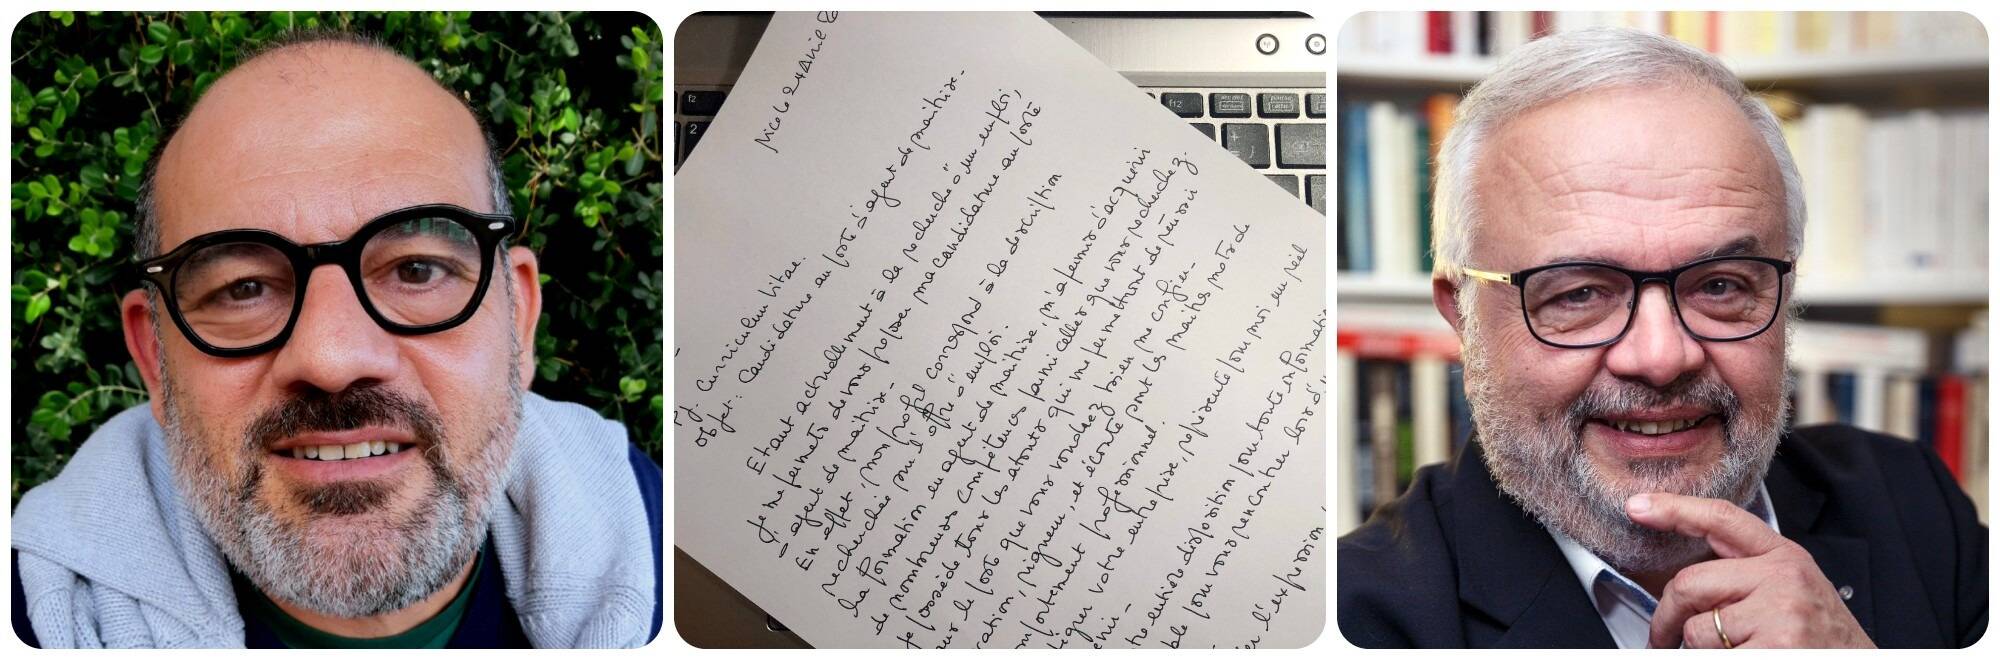 Nice le 24 Avril
P.J. Curriculum Vitae.
Objet: Candidature au poste d'agent de maitrise-
Etant actuellement à la recherche d'un emploi,
Je me permets de vous proposer ma candidature au poste
d'agent de maitrise-
En effet, mon profil correspond à la description
recherchée sur l'offre d'emploi.
La formation en agent de maitrise, m'a permis d'acquérir
de nombreuses compétences parmi celles que vous recherchez.
Je possède tous les atouts qui me permettront de réussir
sur le poste que vous voudrez bien me confier-
ration, rigueur, et écoute sont les maitres mots de
comportement professionnel.
votre entreprise, représente pour moi un réel
entière disposition pour toute information
ble pour vous rencontrer lors d'
l'expression
f2
2
f12